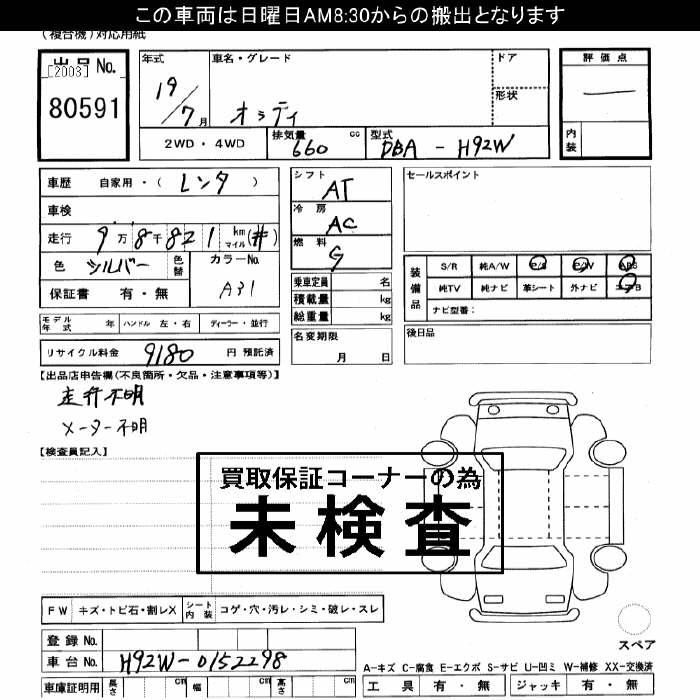 この車両は日曜日AM8:30からの搬出となります
(複合機)対応用紙
出品No.
[2003]
80591
年式
19/7月
車名・グレード
オッティ
ドア
形状
評価点
―
内装
2WD・4WD
排気量 660 cc
型式 DBA-H92W
車歴 自家用・(レンタ)
車検
走行 9万8千821 km マイル(#)
色 シルバー 色替
カラーNo. A31
保証書 有・無
シフト AT
冷房 AC
燃料 G
乗車定員 名
積載量 kg
総重量 kg
セールスポイント
装備品
S/R 純A/W P/S P/W ABS
純TV 純ナビ 革シート 外ナビ エアB
ナビ型番:
モデル年式 年 ハンドル 左・右 ディーラー・並行
リサイクル料金 9180 円 預託済
名変期限
月 日
後日品
【出品店申告欄(不良箇所・欠品・注意事項等)】
走行不明
メーター不明
【検査員記入】
買取保証コーナーの為
未検査
FW キズ・トビ石・割レX シート内装 コゲ・穴・汚レ・シミ・破レ・スレ
登録No.
車台No. H92W-0152298
車庫証明用 長さ cm 幅 cm 高さ cm
スペア
A-キズ C-腐食 E-エクボ S-サビ U-凹ミ W-補修 XX-交換済
工具 有・無 ジャッキ 有・無